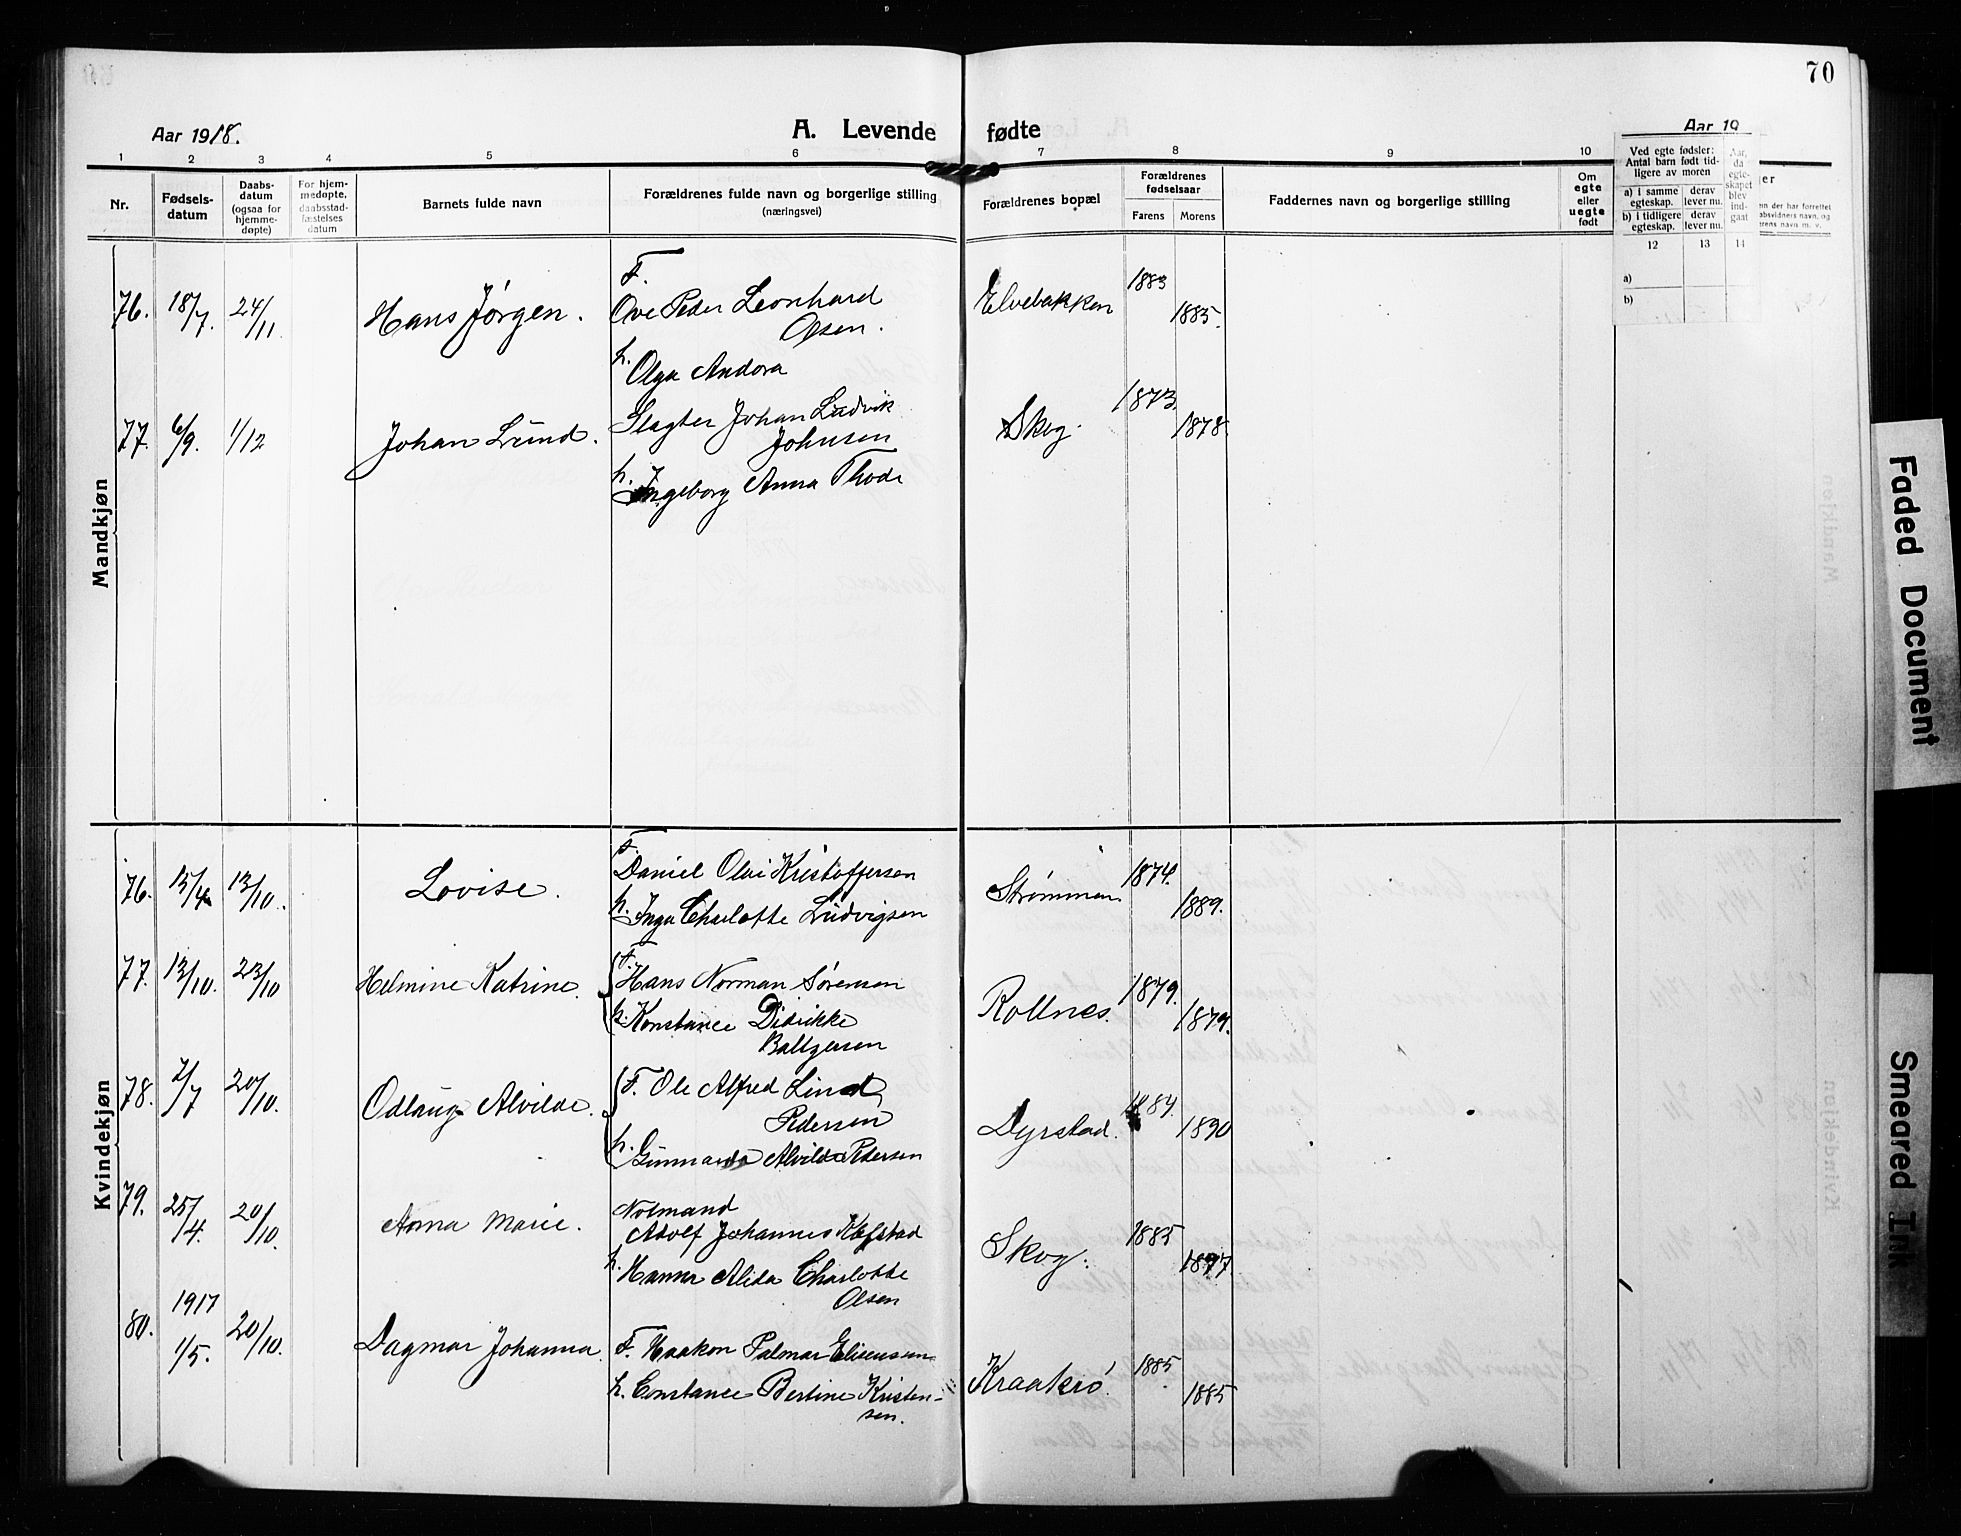 70
Aar 1918.
A. Levende fødte
Aar 19
1 2 3 4 5 6 7 8 9 10
Nr.
Fødsels-
datum
Daabs-
datum
(ogsaa for
hjemme-
døpte)
For hjem-
medøpte,
daabsstad-
fæstelses
datum
Barnets fulde navn
Forældrenes fulde navn og borgerlige stilling
(næringsvei)
Forældrenes bopæl
Forældrenes
fødselsaar
Farens Morens
Faddernes navn og borgerlige stilling
Om
egte
eller
uegte
født
Ved egte fødsler:
Antal barn født tid-
ligere av moren
a) i samme
egteskap.
derav
lever nu.
b) i tidligere
egteskap.
derav
lever nu.
Aar,
da
egte-
skapet
blev
ind-
gaat
12 13 14
a)
b)
Mandkjøn
76. 18/7. 24/11. Hans Jørgen.
F.
Ove Peder Leonhard
Olsen.
h. Olga Andora
Elvebakken 1883 1885.
77. 6/9. 1/12 Johan Lund.
Slagter Johan Ludvik
Johnsen
h. Ingeborg Anna Thode
Skog. 1873. 1878.
Kvindekjøn
76. 15/4 13/10. Lovise.
F.
Daniel Olai Kristoffersen
h. Inga Charlotte Ludvigsen
Strømmen. 1874. 1889.
77. 13/10. 23/10 Helmine Katrine.
F.
Hans Norman Sørensen
h. Konstance Didrikke
Baltzersen
Rollnes. 1879. 1879.
78. 2/7 20/10. Odlaug Alvilde.
F. Ole Alfred Lind
Pedersen
h. Gunnarda Alvilde Pedersen
Dyrstad. 1884. 1890
79. 25/4. 20/10. Anna Marie.
Notmand
Adolf Johannes Kefstad
h. Hanna Alida Charlotte
Olsen
Skog. 1885 1897
80. 1917
1/5. 20/10. Dagmar Johanna.
F. Haakon Palmar Elisensen
h. Constance Bertine Kristen-
sen.
Kraakrø. 1885 1885
Faded Document
Smeared Ink